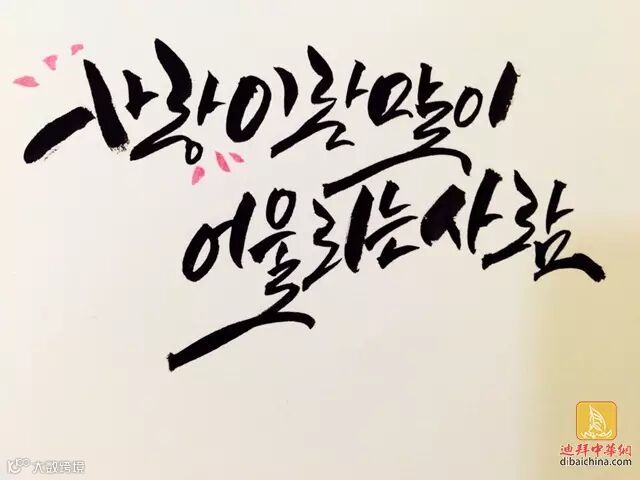 사랑이란 말이
어울리는 사람
迪拜中華網
dibaichina.com
大数跨境